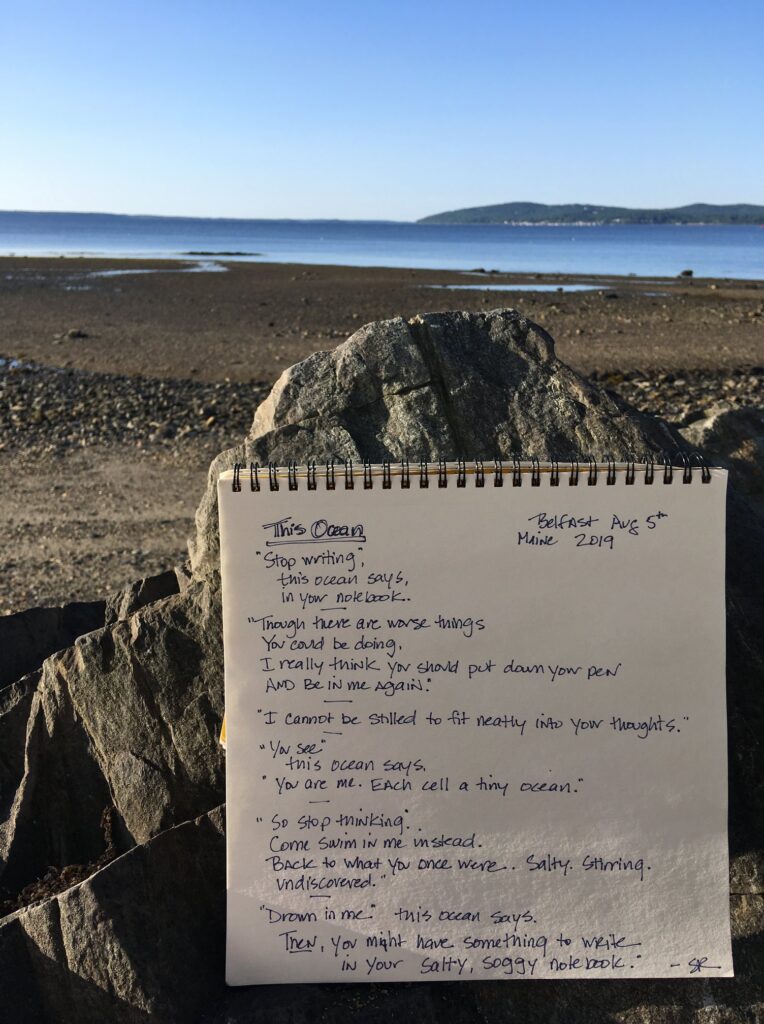 This Ocean
Belfast Aug 5th
Maine 2019
"Stop writing",
this ocean says,
in your notebook..
"Though there are worse things
You could be doing,
I really think you should put down your pen
AND Be in me Again."
"I cannot be stilled to fit neatly into your thoughts."
"You see"
this ocean says,
"You are me. Each cell a tiny ocean."
"So stop thinking."
Come swim in me instead.
Back to what you once were.. Salty. Stirring.
Undiscovered."
"Drown in me." this ocean says.
Then, you might have something to write
in your salty, soggy notebook." - SR